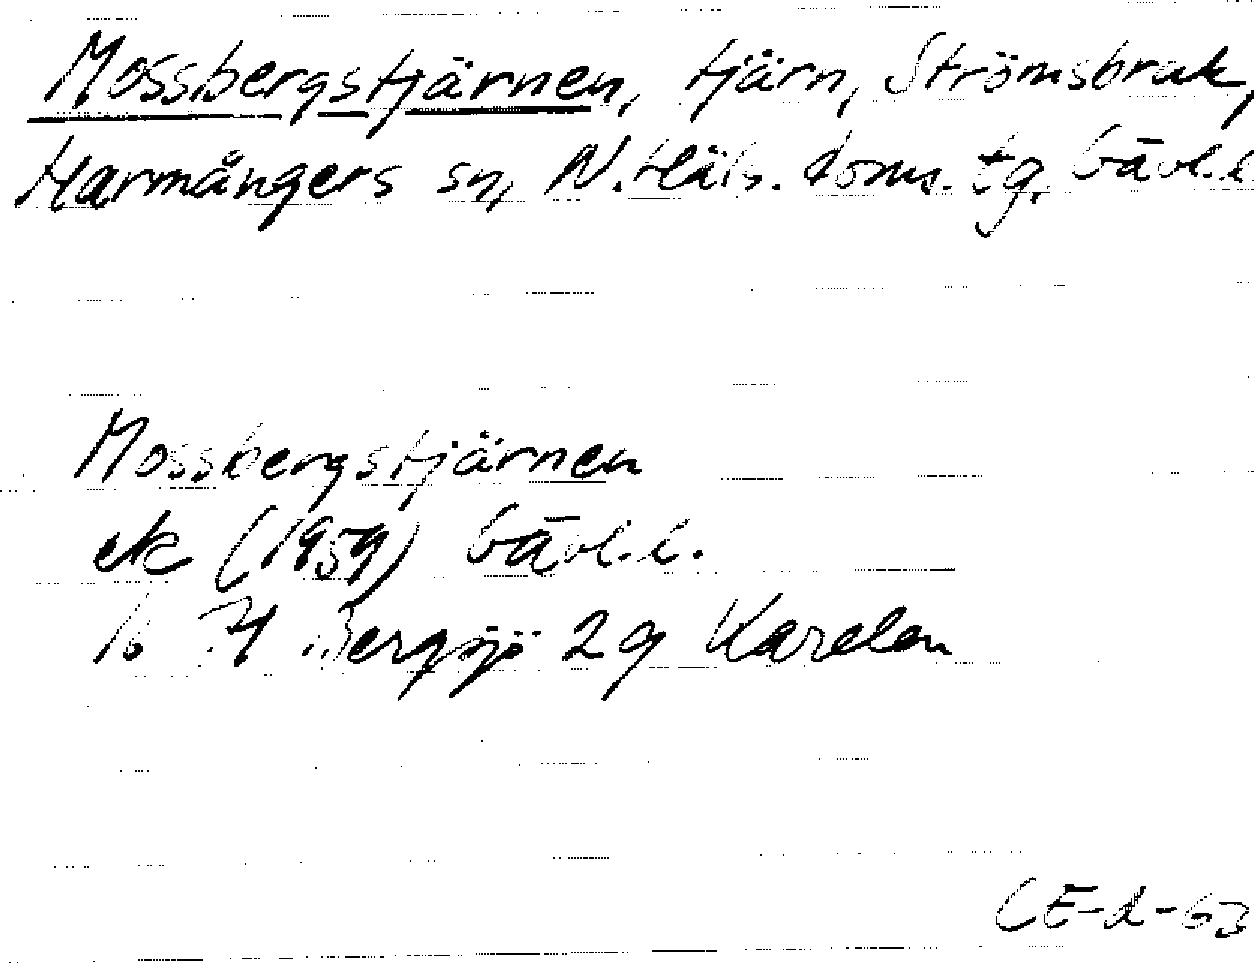 Mossbergstjärnen, tjärn, Strömsbruk,
Harmångers sn, N. Häls. doms. tg. Gävl. l.
Mossbergstjärnen
ek (1959) Gävl. l.
16 H Bergsjö 2 g Karelen
CE-2-63